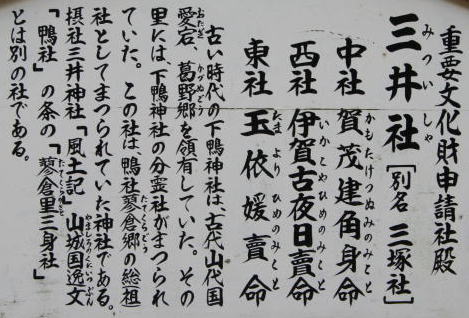 重要文化財申請社殿
三井社［別名 三塚社］
みついしゃ
中社 賀茂建角身命
かもたけつぬみのみこと
西社 伊賀古夜日賣命
いかこやひめのみこと
東社 玉依媛賣命
たまよりひめのみこと
古い時代の下鴨神社は、古代山代国
愛宕、葛野郷を領有していた。その
おたぎ かづぬごう
里には、下鴨神社の分霊社がまつられ
ていた。この社は、鴨社蓼倉郷の総祖
たてくらごう
社としてまつられていた神社である。
摂社三井神社「風土記」山城国逸文
やましろのくにいつぶん
「鴨社」の条の「蓼倉里三身社」
たてくらのさと
とは別の社である。